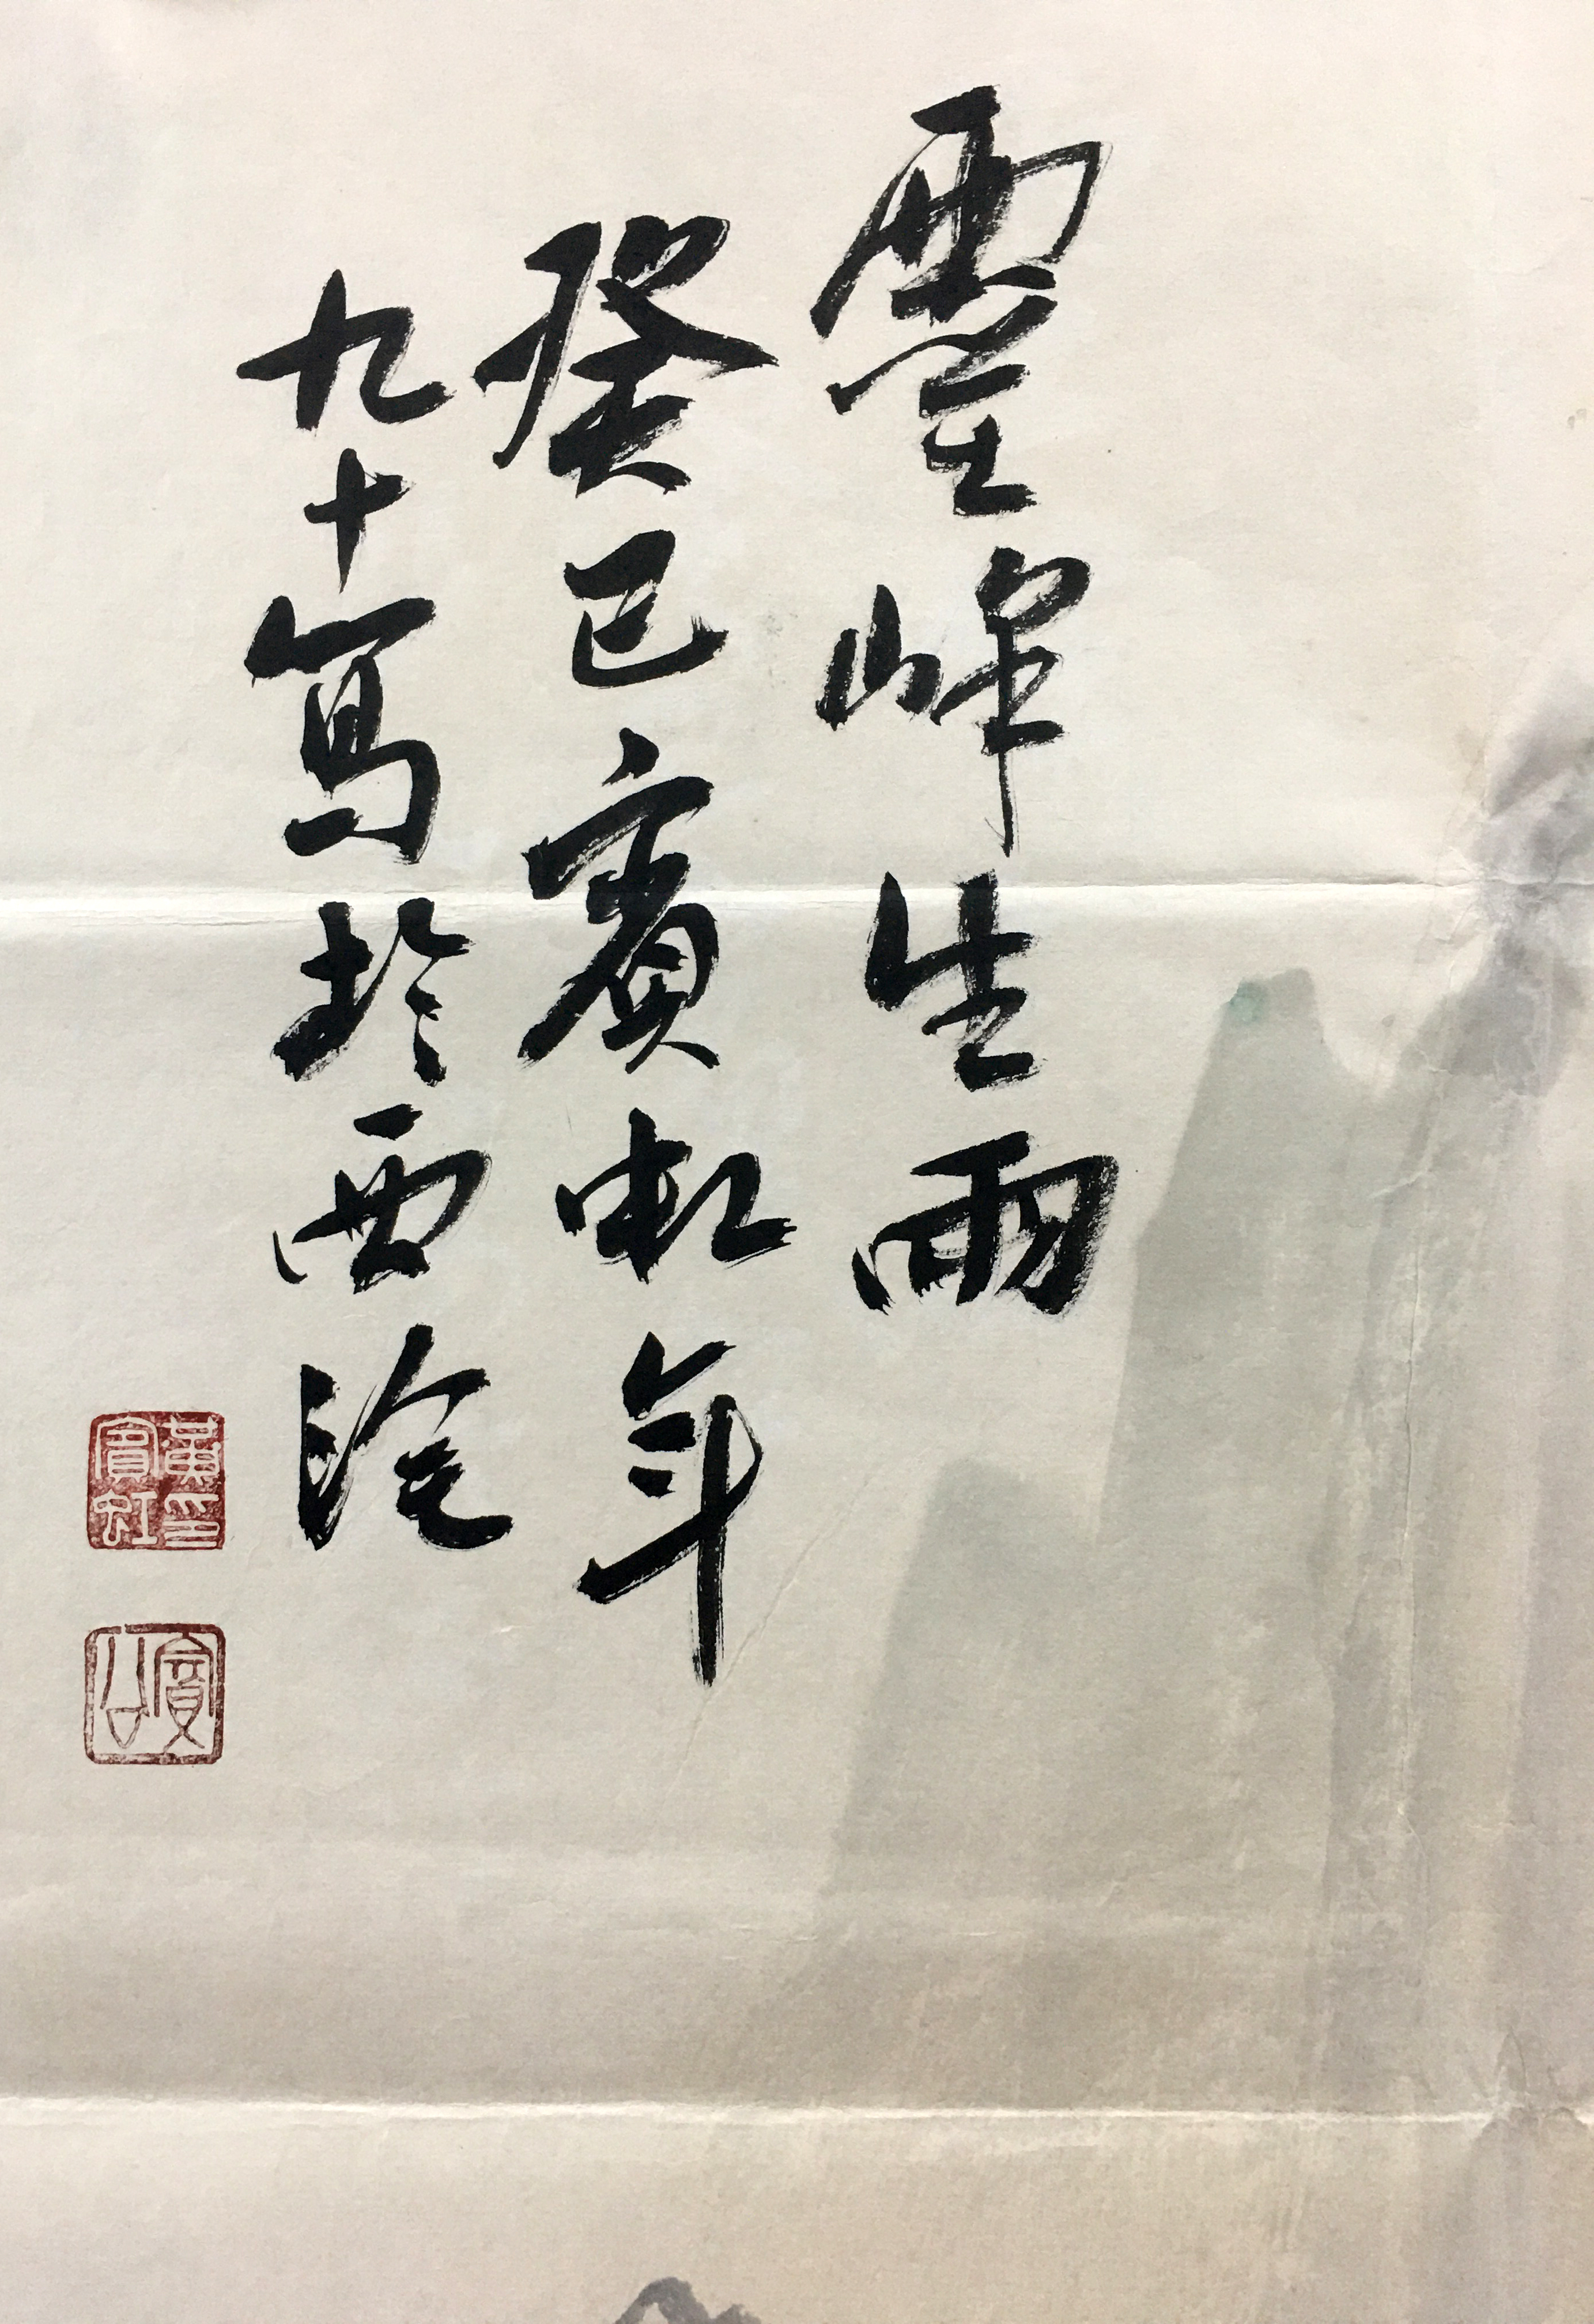 靈峰生雨
癸巳賓虹年
九十寫於西泠
黃賓虹印
賓公